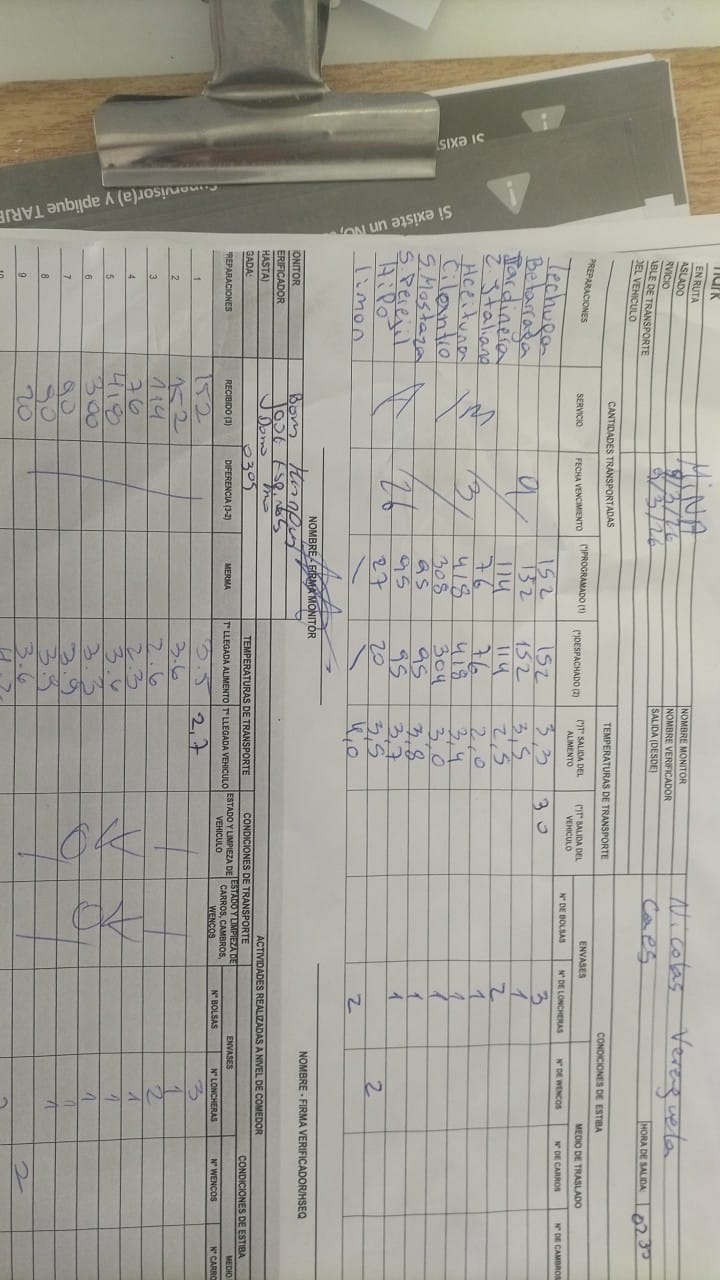 Si existe un NO,
Supervisor(a) y aplique TARJE
EN RUTA
MINA
NOMBRE MONITOR
Nicolas Verenguela
ASLADO 9/3/26
NOMBRE VERIFICADOR
RVICIO 9/3/26
SALIDA (DESDE) Caes
HORA DE SALIDA: 0230
BLE DE TRANSPORTE
DEL VEHICULO
CANTIDADES TRANSPORTADAS TEMPERATURAS DE TRANSPORTE CONDICIONES DE ESTIBA
ENVASES MEDIO DE TRASLADO
PREPARACIONES SERVICIO FECHA VENCIMIENTO (*)PROGRAMADO (1) (*)DESPACHADO (2) (*)T° SALIDA DEL ALIMENTO (*)T° SALIDA DEL VEHICULO N° DE BOLSAS N° DE LONCHERAS N° DE WENCOS N° DE CARROS N° DE CAMBROS
Lechuga 152 152 3,3 30 3
Betarraga 9 152 152 3,5 1
Jardinera 114 114 2,5 2
Z. Italiano 76 76 2,0 1
Aceituna M 3 418 418 3,4 1
Cilantro 308 304 3,0 1
S. Mostaza 95 95 3,8 1
S. Perejil 26 95 95 3,7 1
A 27 20 3,5 2
limon 4,0 2
NOMBRE - FIRMA MONITOR NOMBRE - FIRMA VERIFICADOR/HSEQ
ONITOR
ERIFICADOR
HASTA)
GADA: 0305
ACTIVIDADES REALIZADAS A NIVEL DE COMEDOR
TEMPERATURAS DE TRANSPORTE CONDICIONES DE TRANSPORTE CONDICIONES DE ESTIBA
ENVASES MEDIO
REPARACIONES RECIBIDO (3) DIFERENCIA (3-2) MERMA T° LLEGADA ALIMENTO T° LLEGADA VEHICULO ESTADO Y LIMPIEZA DE VEHICULO ESTADO Y LIMPIEZA DE CARROS, CAMBROS, WENCOS N° BOLSAS N° LONCHERAS N° WENCOS N° CARRO
1 152 3.5 2,7 3
2 152 3.6 1
3 114 2.6 2
4 76 2.3 1
5 418 3.4 1
6 300 3.3 1
7 90 3.9 1
8 90 3.9 1
9 20 3.6 2
10